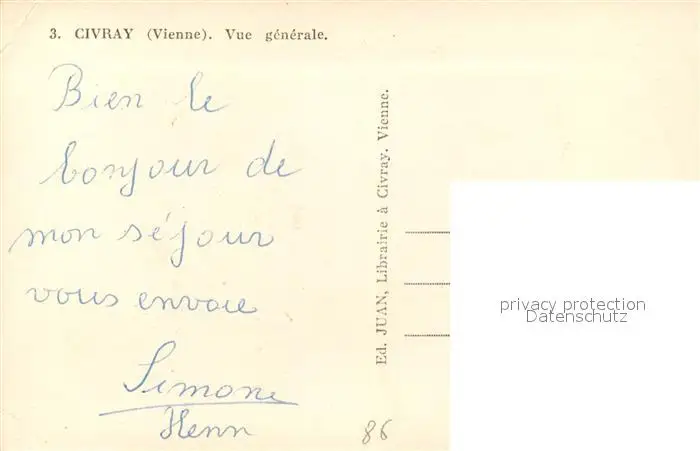 3. CIVRAY (Vienne). Vue générale.
Bien le
bonjour de
mon séjour
vous envoie
Simone
Henn
Ed. JUAN, Librairie à Civray. Vienne.
86
privacy protection
Datenschutz